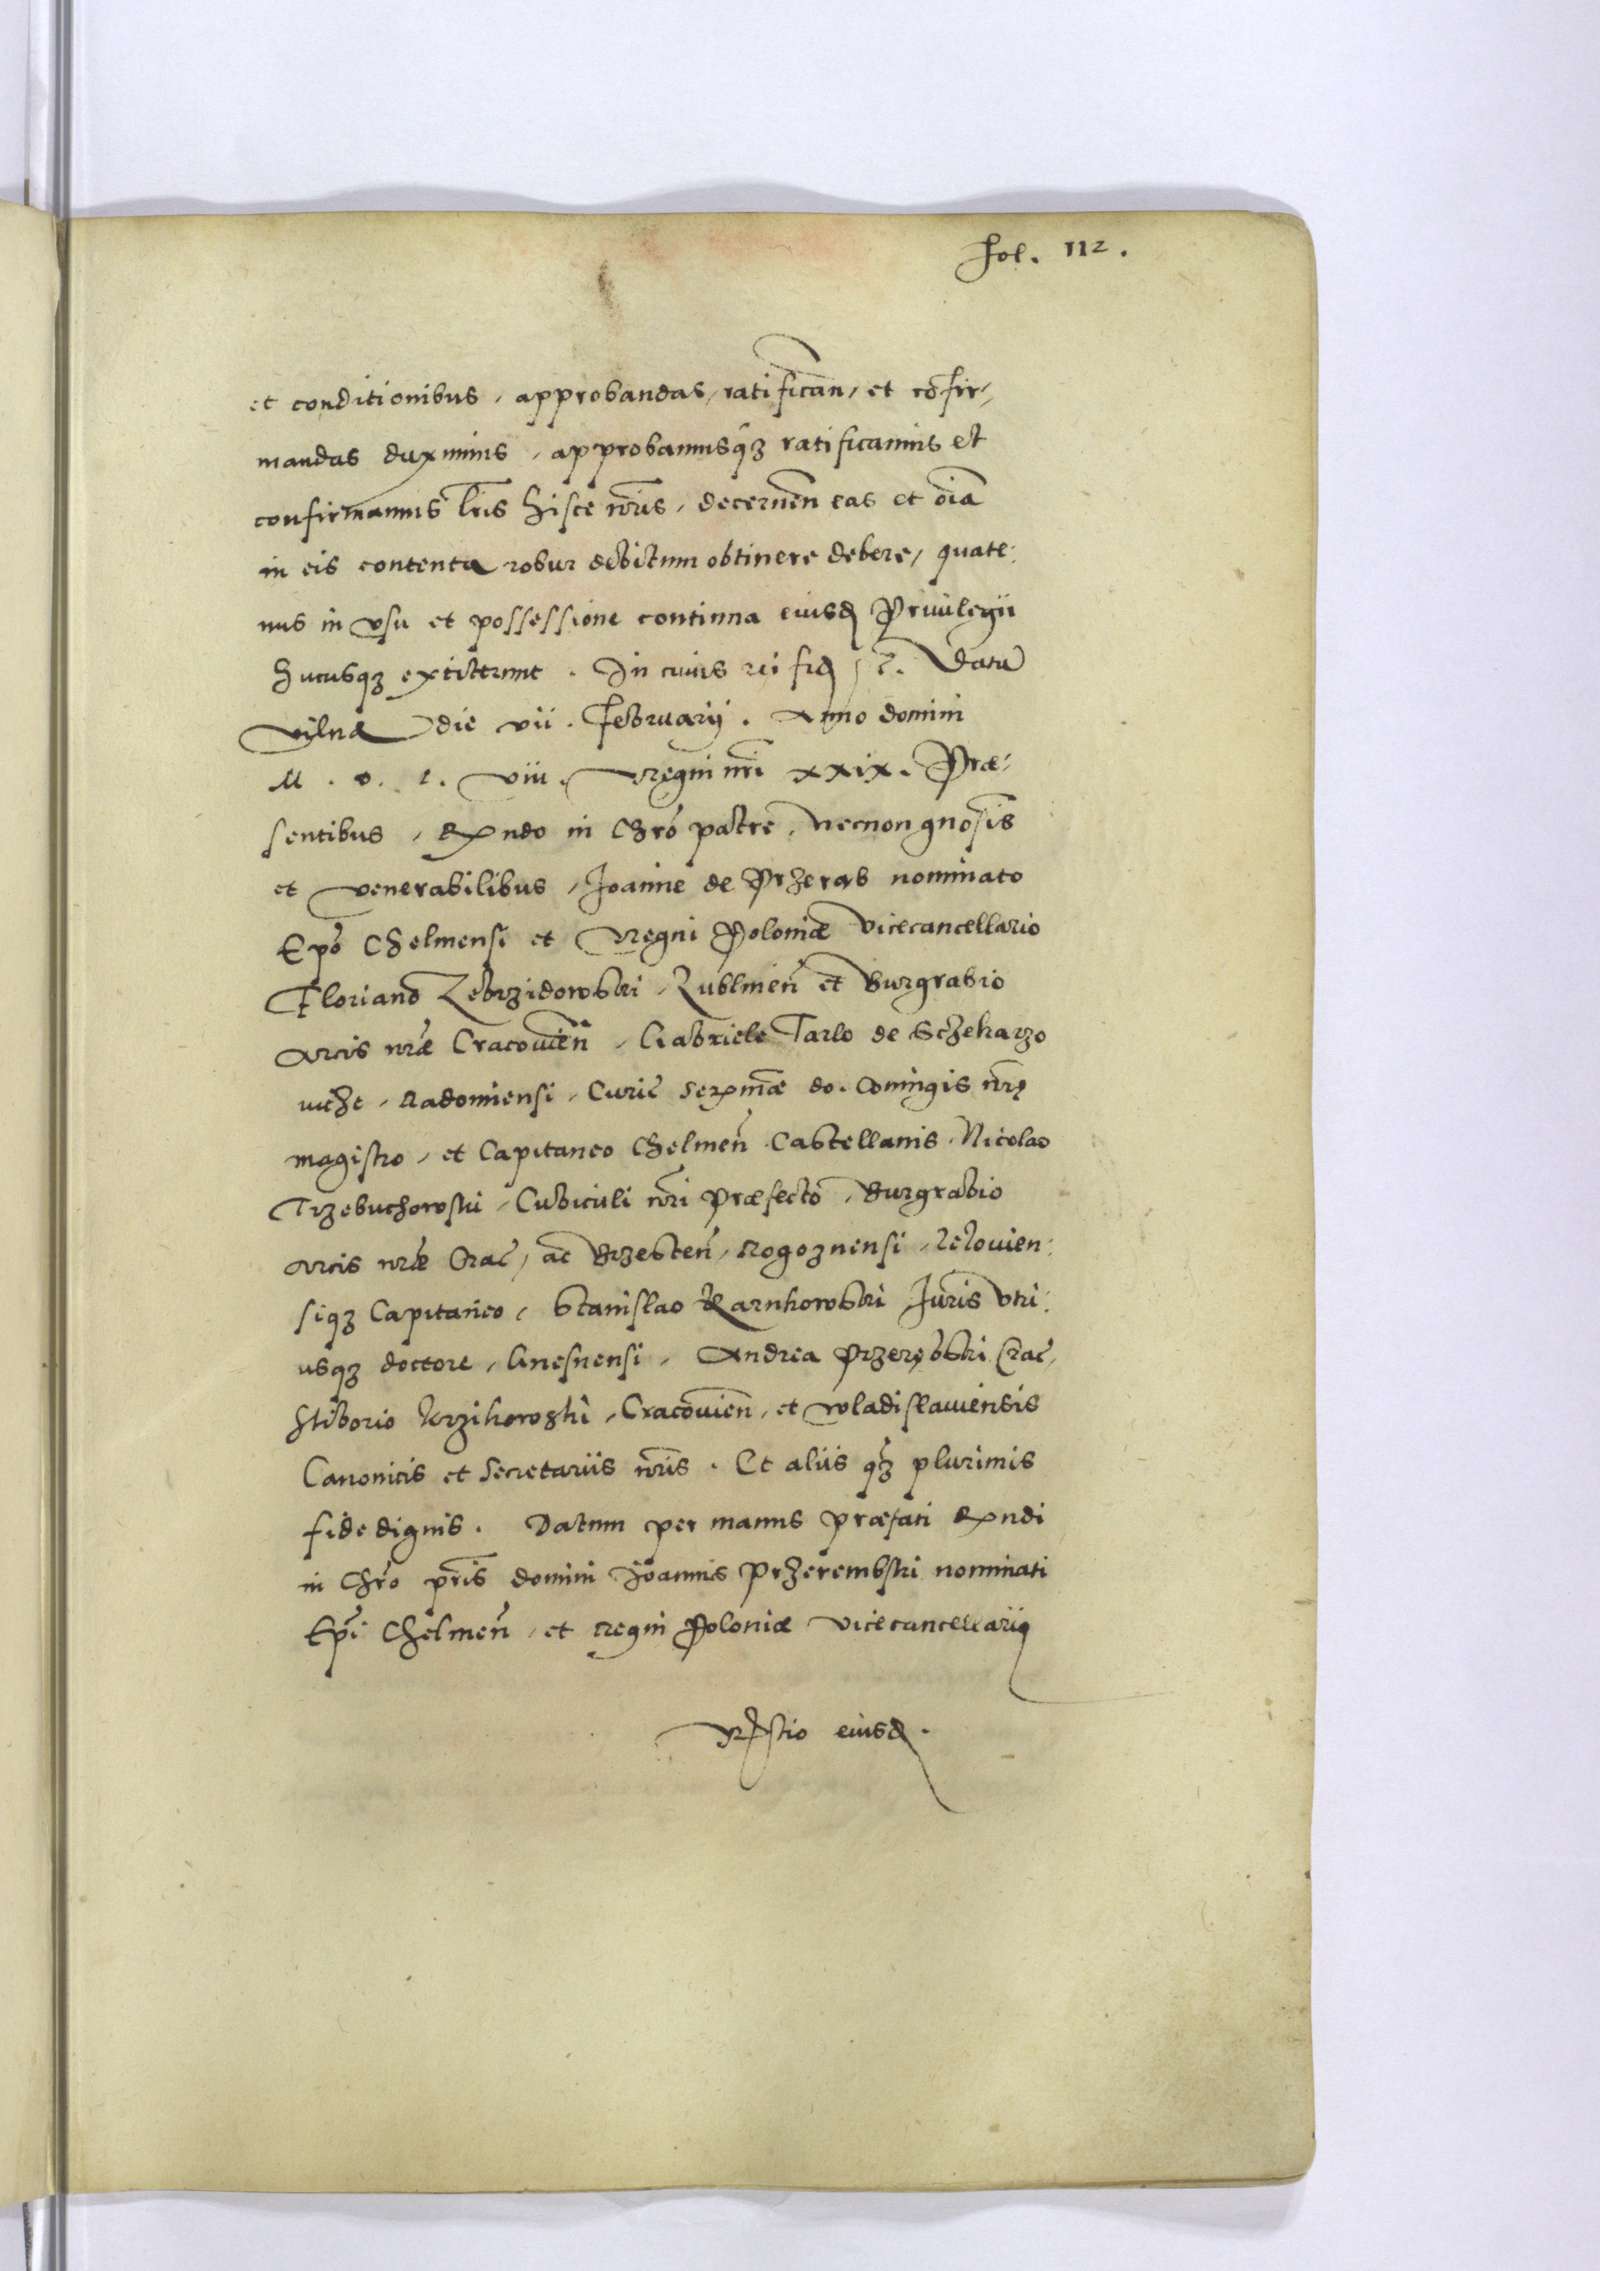 fol. 112.
et conditionibus, approbandas, ratifican̄, et cōfir-
mandas duximus, approbamusq3 ratificamus et
confirmamus lr̄is hisce nr̄is, decernen̄ eas et oīa
in eis contenta robur debitum obtinere debere, quate:
nus in vsu et possessione continua eiusd Priuilegii
hucusq3 extiterunt. In cuius rei fid, Datū
Vilnæ die vii. februarij. Anno domini
M. D. L. viii. Regni nr̄i xxix. Præ-
sentibus, Rndo in Chrō patre, necnon gnosīs
et venerabilibus, Joanne de Przeramb nominato
Epō Chelmensi et Regni Poloniæ Vicecancellario
Floriano Zebrzidowski, Lublinen̄ et Burgrabio
Arcis nr̄æ Cracouien̄, Gabriele Tarlo de Sczekarzo
uicze, Radomiensi, Curiæ Serxmæ do. Coniugis nr̄ę
magistro, et Capitaneo Chelmen̄ Castellanis, Nicolao
Trzebuchowski, Cubiculi nr̄i præfecto, Burgrabio
Arcis nr̄æ Crac̄, ac Brzesten̄, Rogoznensi, Lelouien:
siq3 Capitaneo, Stanislao Karnkowski Juris vtri:
usq3 doctore, Gnesnensi, Andrea Przerębski Crac̄,
Stiborio Krzikowski, Cracouien̄, et wladislauiensis
Canonicis et Secretariis nr̄is. Et aliis q3 plurimis
fidedignis. Datum per manus præfati Rndi
in Chrō pr̄is domini Joannis Przerembski nominati
Epī Chelmen̄, et Regni Poloniæ Vicecancellarij
eiusd.